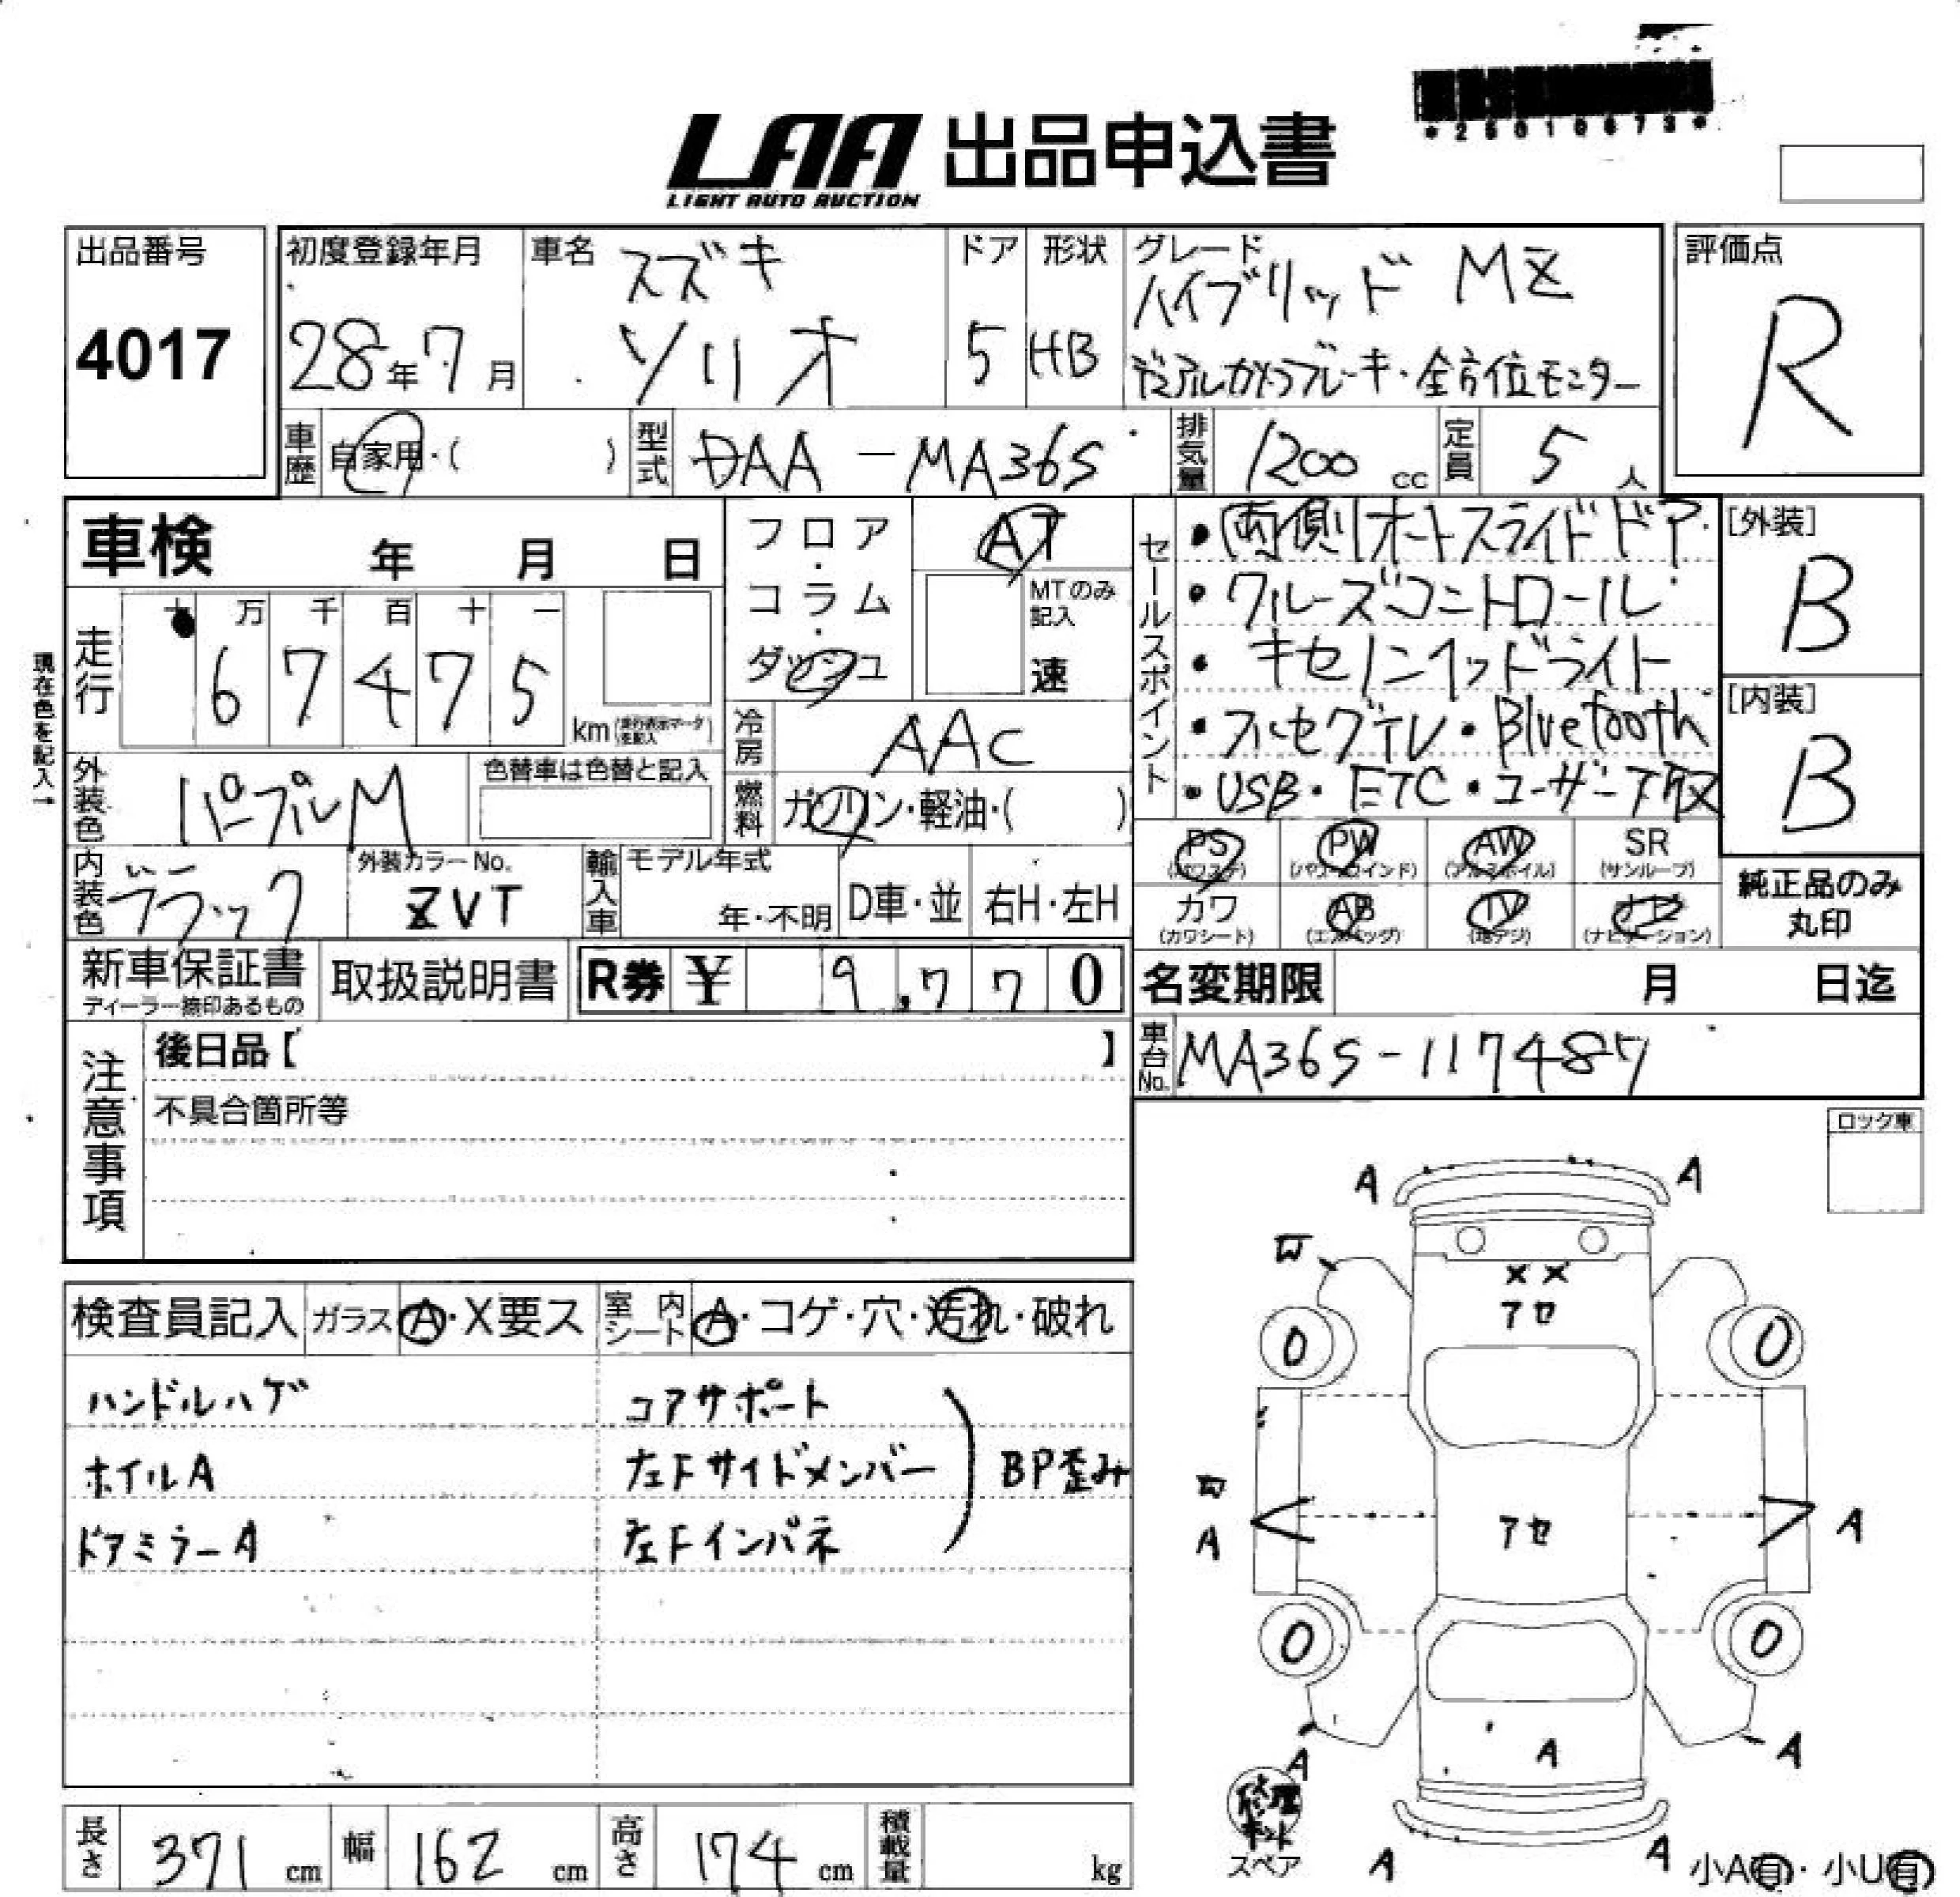 *25010673*
LAA 出品申込書
LIGHT AUTO AUCTION
出品番号
4017
初度登録年月
28年7月
車名 スズキ
ソリオ
ドア
5
形状
HB
グレード
ハイブリッド MZ
デュアルカメラブレーキ・全方位モニター
評価点
R
車歴 自家用・( )
型式 DAA-MA36S
排気量 1200 cc
定員 5 人
車検 年 月 日
フロア・コラム・ダッシュ
AT
MTのみ記入
速
セールスポイント
・両側オートスライドドア
・クルーズコントロール
・キセノンヘッドライト
・フルセグテレ・Bluetooth
・USB・ETC・ユーザー下取
[外装]
B
[内装]
B
現在色を記入→
走行 十 万 千 百 十 一
6 7 4 7 5
km (走行表示マークを記入)
冷房 AAC
燃料 ガソリン・軽油・( )
外装色 パープルM
色替車は色替と記入
内装色 ブラック
外装カラーNo.
ZVT
輸入車 モデル年式
年・不明
D車・並
右H・左H
PS (パワステ)
PW (パワーウインド)
AW (アルミホイル)
SR (サンルーフ)
カワ (カワシート)
AB (エアバッグ)
TV (地デジ)
ナビ (ナビゲーション)
純正品のみ
丸印
新車保証書
ディーラー捺印あるもの
取扱説明書
R券 ¥ 9,770
名変期限 月 日迄
注意事項
後日品【 】
不具合箇所等
車台No. MA36S-117487
ロック車
検査員記入 ガラス A・X要ス
室内シート A・コゲ・穴・汚れ・破れ
ハンドルハゲ
ホイルA
ドアミラーA
コアサポート
左Fサイドメンバー
左Fインパネ
BP歪み
A A
W
X X
アセ
0 0
W
A
アセ
A
0 0
A
A
A
修理キット
スペア
A A
小A有・小U有
長さ 371 cm
幅 162 cm
高さ 174 cm
積載量 kg